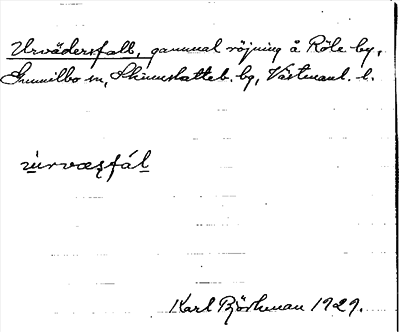 Urvädersfall, gammal röjning å Röle by,
Gunnilbo sn, Skinnskatteb. bg, Västmanl. l.
ùrvæʂfál
Karl Björkman 1929.